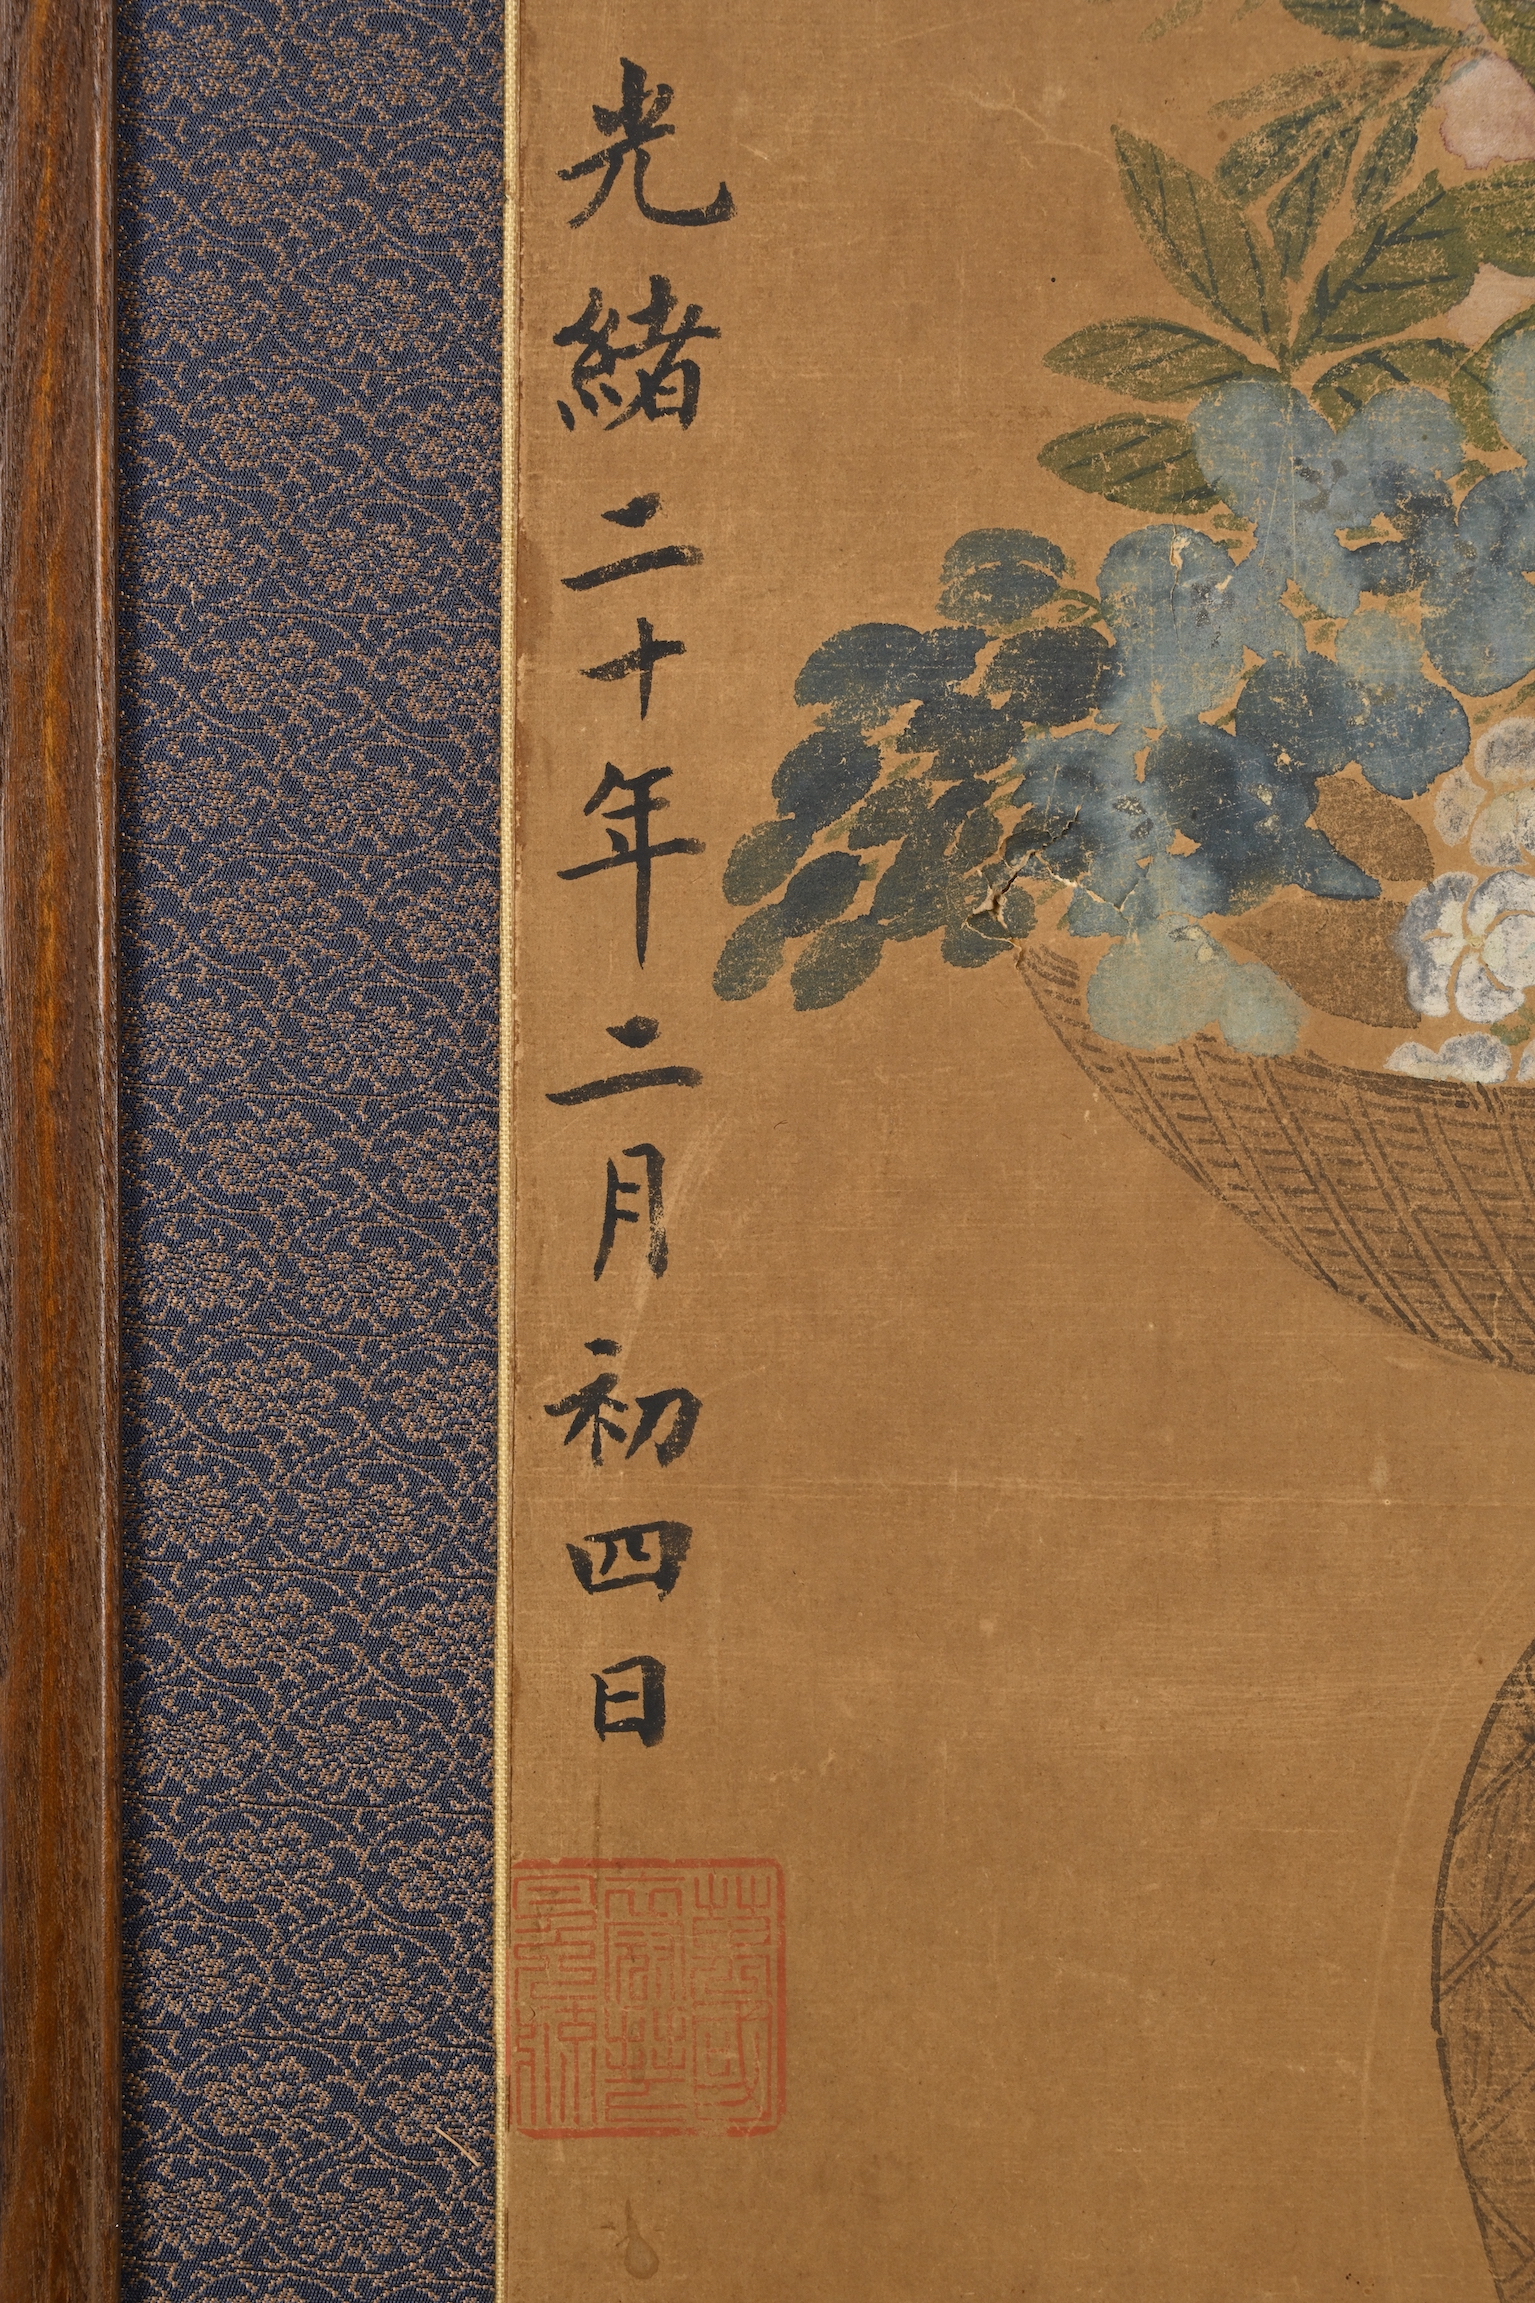 光緒二十年二月初四日